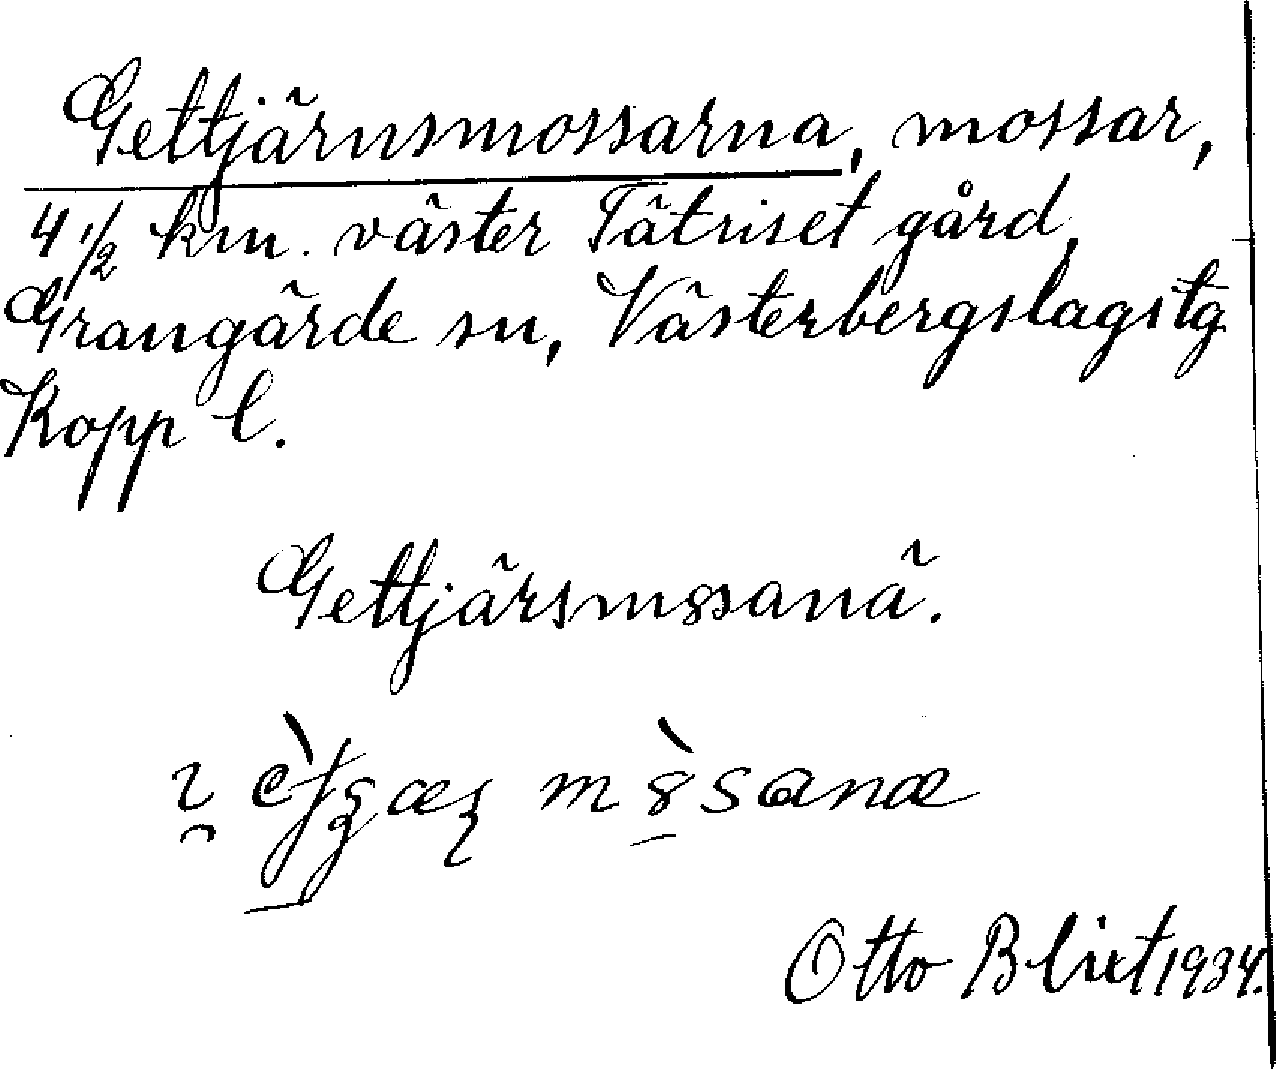 Gettjärnsmossarna, mossar,
4 1/2 km. väster Tätriset gård,
Grangärde sn, Västerbergslags tg.
Kopp l.
Gettjärsmssanä.
Otto Blixt 1934.